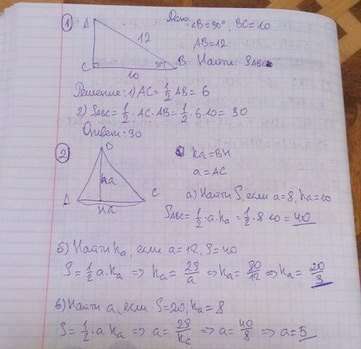 1) Дано: ∠B=30°, BC=10
AB=12
Найти: SABC
A
12
C
30°
B
10
Решение: 1) AC = 1/2 AB = 6
2) SABC = 1/2 · AC · AB = 1/2 · 6 · 10 = 30
Ответ: 30
2) ha = BH
a = AC
ha
A
C
Ha
а) Найти S, если a=8, ha=10
SABC = 1/2 · a · ha = 1/2 · 8 · 10 = 40
б) Найти ha, если a=12, S=40
S = 1/2 · a · ha => ha = 2S/a => ha = 80/12 => ha = 20/3
в) Найти a, если S=20, ha=8
S = 1/2 · a · ha => a = 2S/ha => a = 40/8 => a = 5